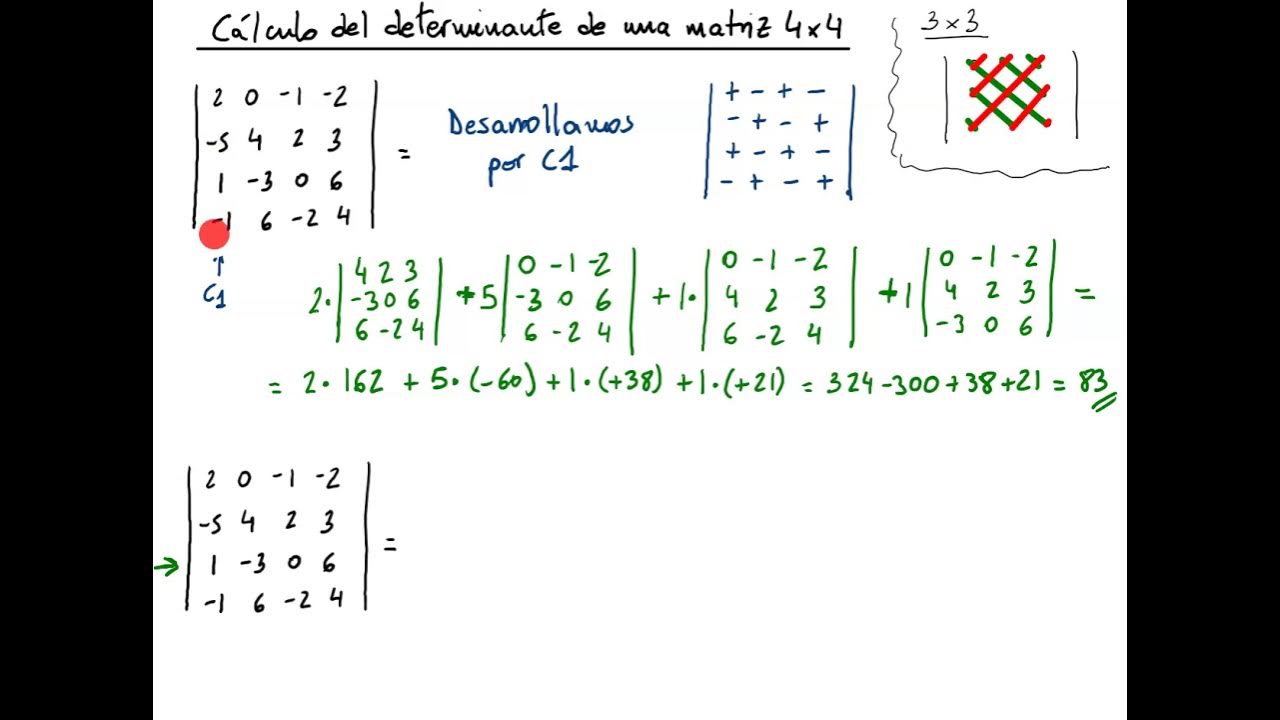 Cálculo del determinante de una matriz 4x4
3 x 3
2 0 -1 -2
-5 4 2 3
1 -3 0 6
-1 6 -2 4
=
Desarrollamos
por C1
+ - + -
- + - +
+ - + -
- + - +
↑
C1
2· |4 2 3| +5 |0 -1 -2| +1· |0 -1 -2| +1 |0 -1 -2| =
|-3 0 6| |-3 0 6| |4 2 3| |4 2 3|
|6 -2 4| |6 -2 4| |6 -2 4| |-3 0 6|
= 2·162 + 5·(-60) + 1·(+38) + 1·(+21) = 324 - 300 + 38 + 21 = 83
2 0 -1 -2
-5 4 2 3
→ 1 -3 0 6
-1 6 -2 4
=